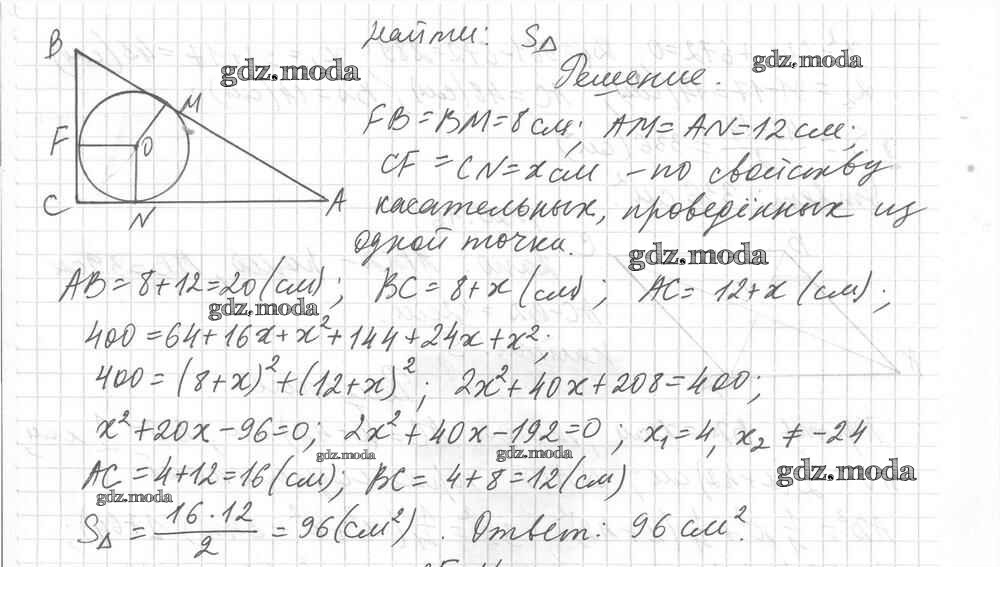 Найти: S△
Решение.
B
M
F
O
C
N
A
FB=BM=8см; AM=AN=12см;
CF=CN=xсм – по свойству
касательных, проведённых из
одной точки.
AB=8+12=20(см); BC=8+x(см); AC=12+x(см);
400=64+16x+x²+144+24x+x²;
400=(8+x)²+(12+x)²; 2x²+40x+208=400;
x²+20x-96=0; 2x²+40x-192=0; x₁=4, x₂≠-24
AC=4+12=16(см); BC=4+8=12(см)
S△=16·12/2=96(см²). Ответ: 96 см².
gdz.moda
gdz.moda
gdz.moda
gdz.moda
gdz.moda
gdz.moda
gdz.moda
gdz.moda